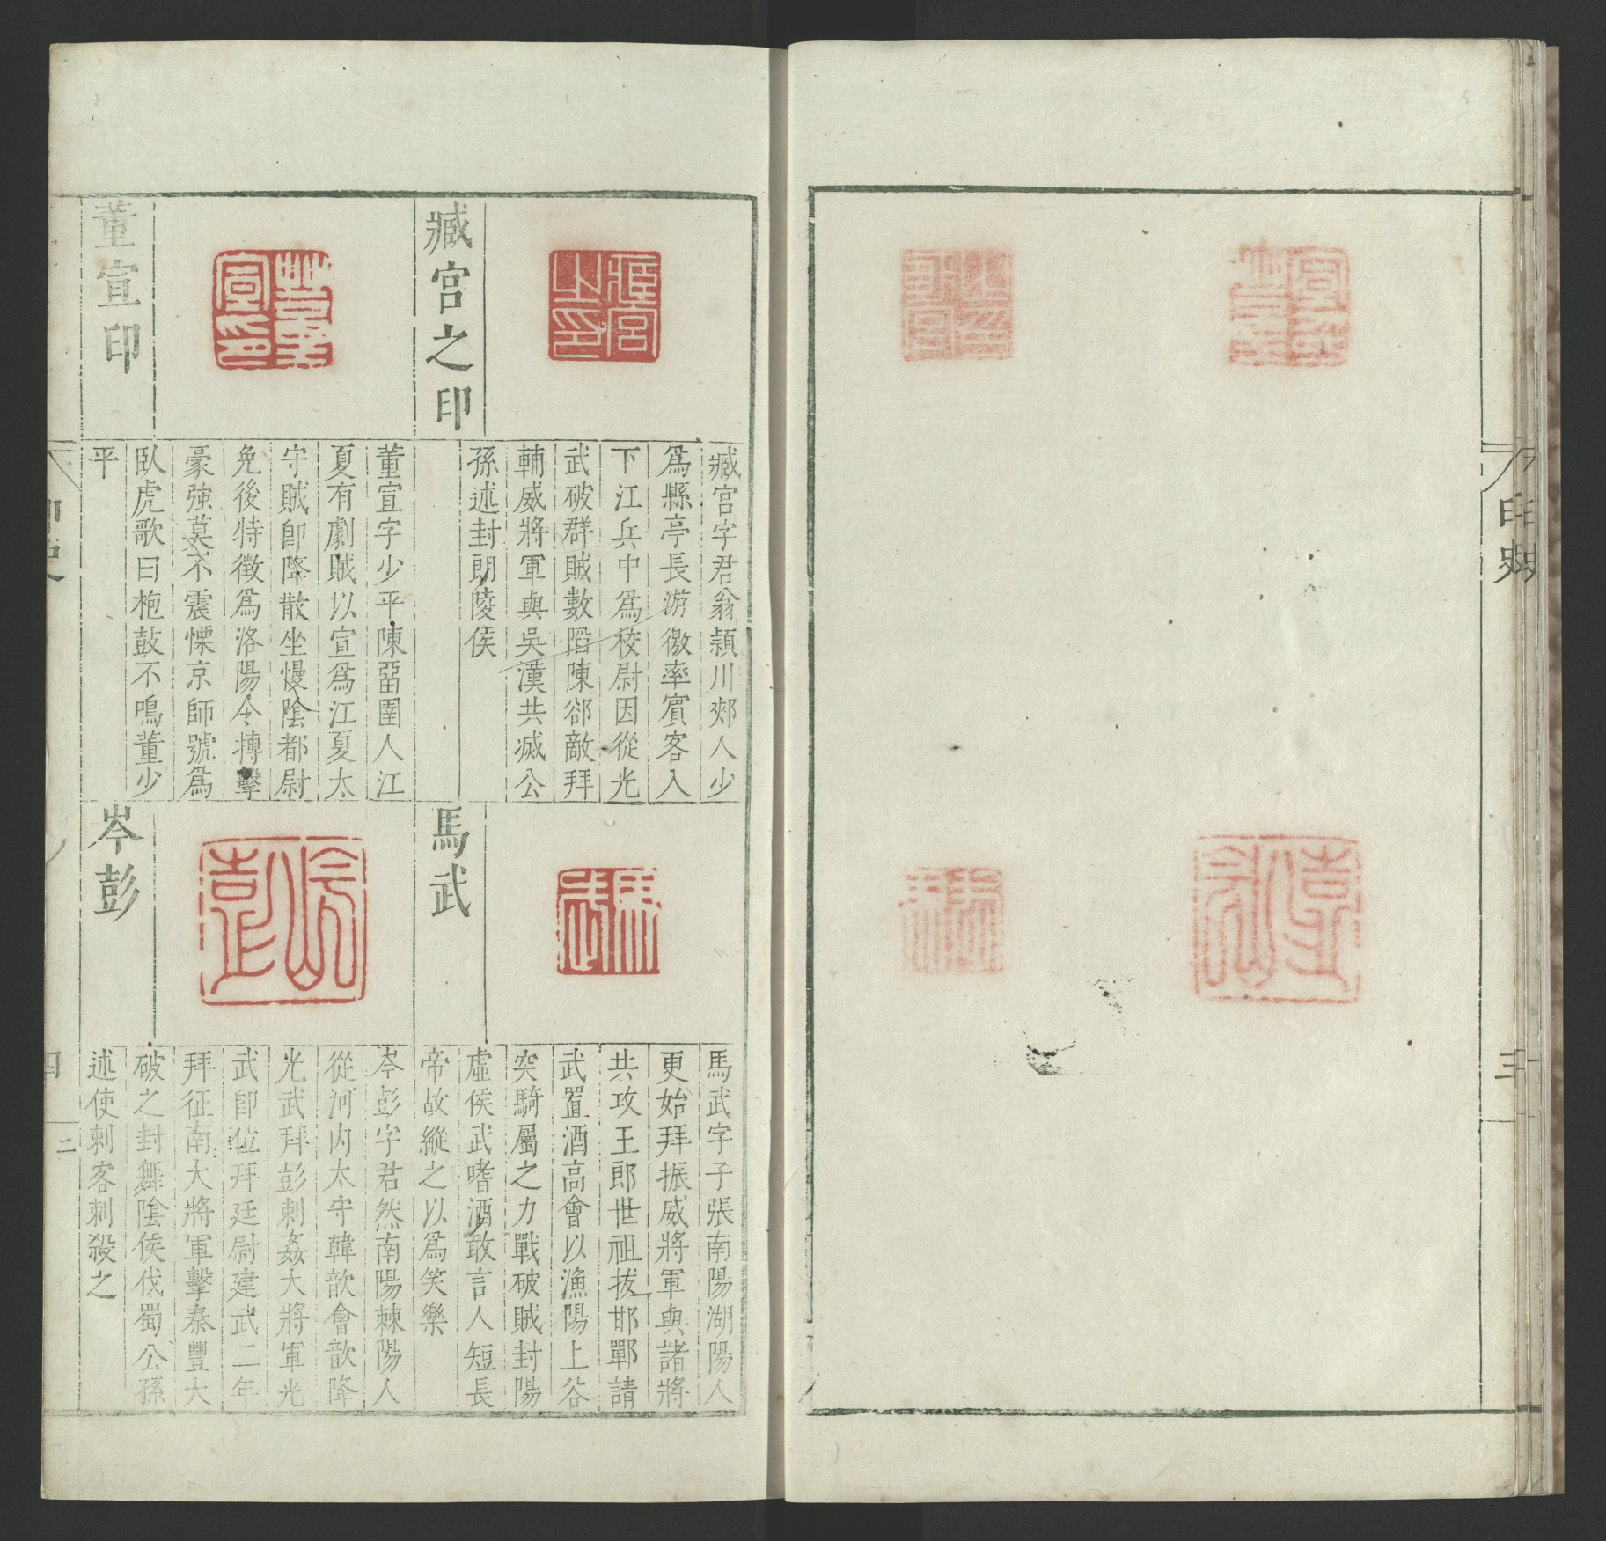 臧宮之印
臧宮字君翁潁川郟人少
為縣亭長游徼率賓客入
下江兵中為校尉因從光
武破群賊數陷陳郤敵拜
輔威將軍與吳漢共滅公
孫述封朗陵侯
董宣印
董宣字少平陳畱圉人江
夏有劇賊以宣為江夏太
守賊卽降散坐慢陰都尉
免後特徵為洛陽令搏擊
豪強莫不震慄京師號為
臥虎歌曰枹鼓不鳴董少
平
馬武
馬武字子張南陽湖陽人
更始拜振威將軍與諸將
共攻王郎世祖拔邯鄲請
武置酒高會以漁陽上谷
突騎屬之力戰破賊封陽
虛侯武嗜酒敢言人短長
帝故縱之以為笑樂
岑彭
岑彭字君然南陽棘陽人
從河內太守韓歆會歆降
光武拜彭刺姦大將軍光
武卽位拜廷尉建武二年
拜征南大將軍擊秦豐大
破之封舞陰侯伐蜀公孫
述使刺客刺殺之